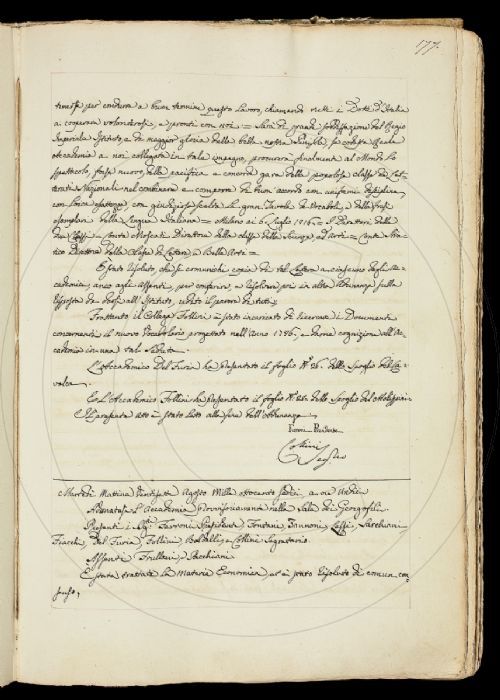 177.
temesse per condurre a buon termine questo lavoro, chiamando tutti i Dotti d'Italia
a cooperare volonterosi, e pronti con noi = Sarà di grande soddisfazione del Regio
Imperiale Istituto, e di maggior gloria della bella nostra Penisola, se cotesta Reale
Accademia a noi collegata in tale impegno, procurerà finalmente al Mondo lo
spettacolo, forse nuovo, della pacifica e concorde gara della popolosa classe dei Let-
terati Nazionali nel continuare e comporre di buon accordo con uniformi discipline,
con lunga esattezza con giudiziosa scelta la gran Tavola de Vocaboli, e delle frasi
esemplari della Lingua Italiana = Milano ai 6. Luglio 1816. = I Direttori delle
due Classi = Conte Moscati Direttore della classe delle Scienze, ed Arti = Conte Stra-
tico Direttore della Classe di Lettere, e Belle Arti =
È stato risoluto, che si comunichi copia di tal Lettera a ciascuno degli Ac-
cademici, anco agli assenti, per conferire, e risolvere poi in altra Adunanza sulla
risposta da darsi all'Istituto, udito il parere di tutti.
Frattanto il Collega Follini è stato incaricato di ricercare i Documenti
concernenti il nuovo Vocabolario progettato nell'Anno 1786. e darne cognizione all'Ac-
cademia in una tal Seduta.
L'Accademico Del Furia ha presentato il foglio N.° 26. dello Spoglio del Ca-
valca.
E l'Accademico Follini ha presentato il foglio N.° 26. dello Spoglio del Ottolippini.
E la presente Atto è stato letto alla fine dell'Adunanza.
Ferroni Presidente
Collini
Segr.rio
Martedì Mattina Ventisette Agosto Mille ottocento sedici, a ore undici
Adunatasi l'Accademia provvisoriamente nella Sala dei Georgofili.
Presenti i SS.ri Ferroni Presidente, Fontani, Zannoni, Lessi, Sarchiani
Fiacchi, Del Furia, Follini, Baldelli, e Collini Segretario.
Assenti Frullani, e Pacchiani.
È stata trattata la Materia Economica, ed è stato risoluto di comun con-
senso,